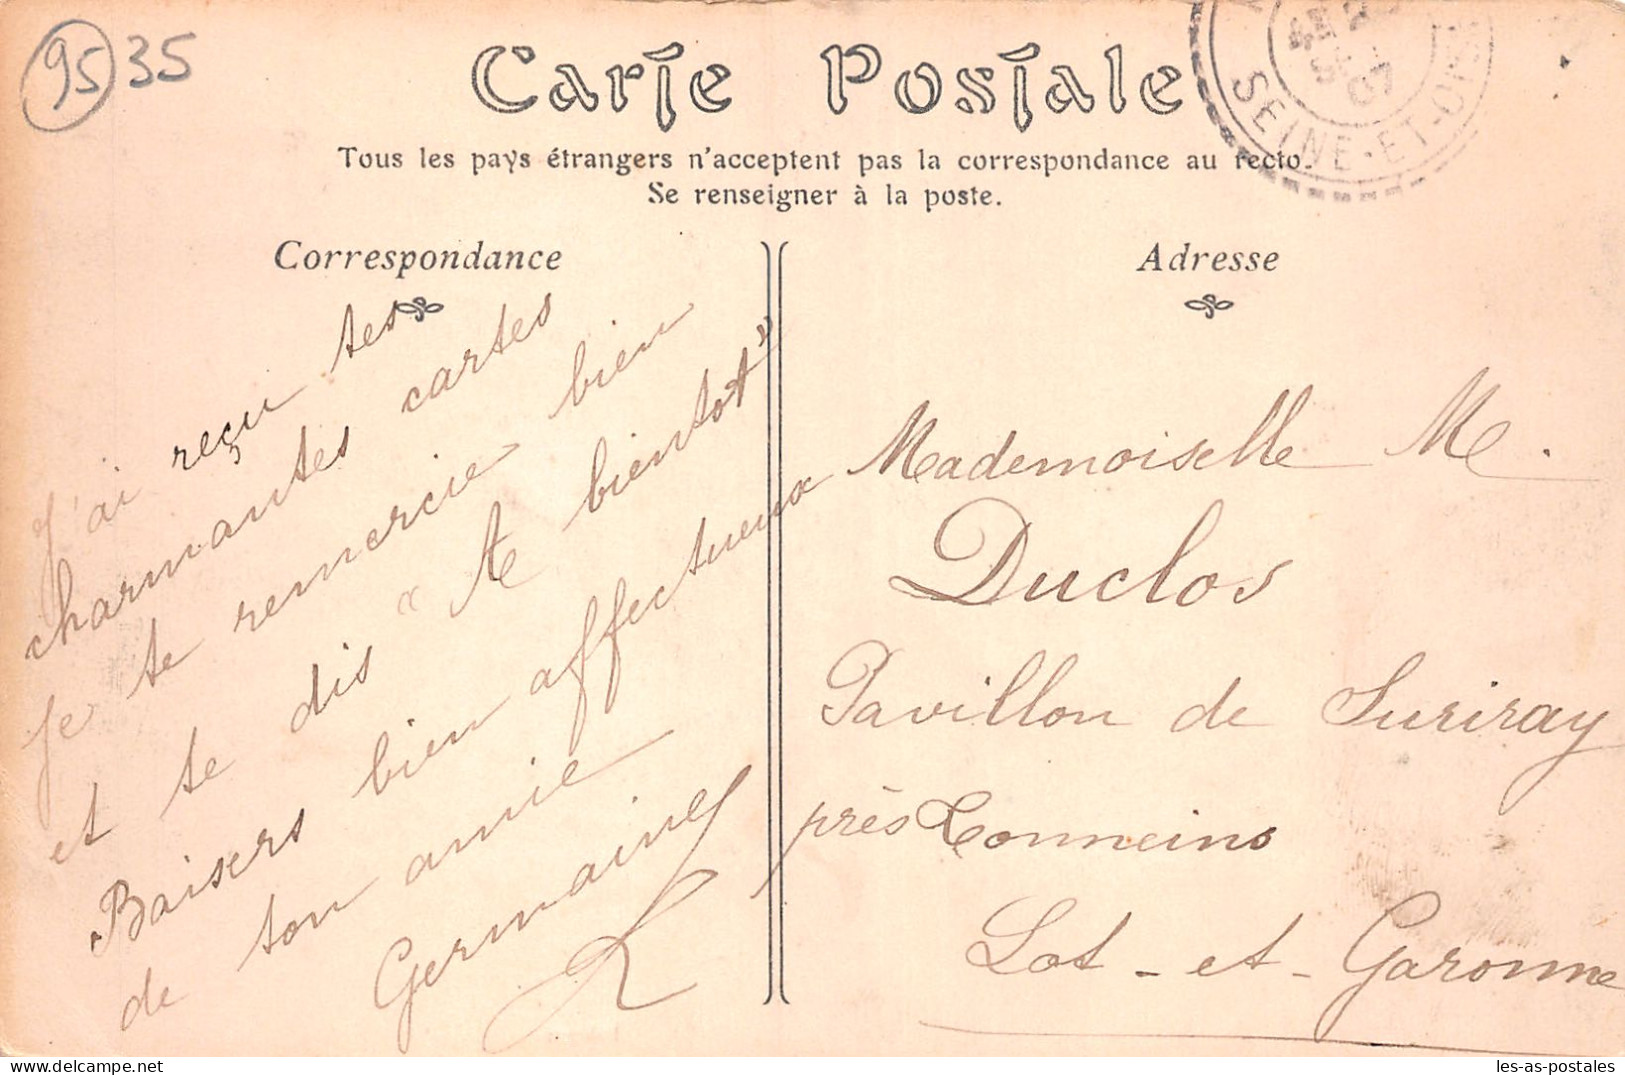 95 35
Carte Postale
Tous les pays étrangers n'acceptent pas la correspondance au recto.
Se renseigner à la poste.
SEINE-ET-OISE
07
Correspondance
J'ai reçu tes
charmantes cartes
je te remercie bien
et te dis "A bientot"
Baisers bien affectueux
de ton amie
Germaine
Adresse
Mademoiselle M.
Duclos
Pavillon de Suriray
près Tonneins
Lot-et-Garonne
les-as-postales